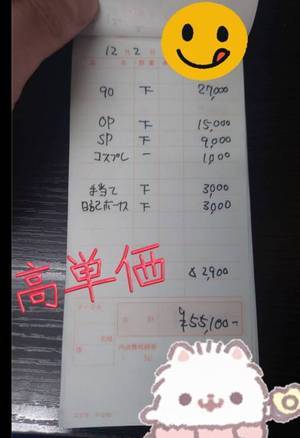 12月2日
90 下 27,000
OP 下 15,000
SP 下 9,000
コスプレ ー 1,000
手当て 下 3,000
日記ボーナス 下 3,000
高単価
△2,900
合計
¥55,100-